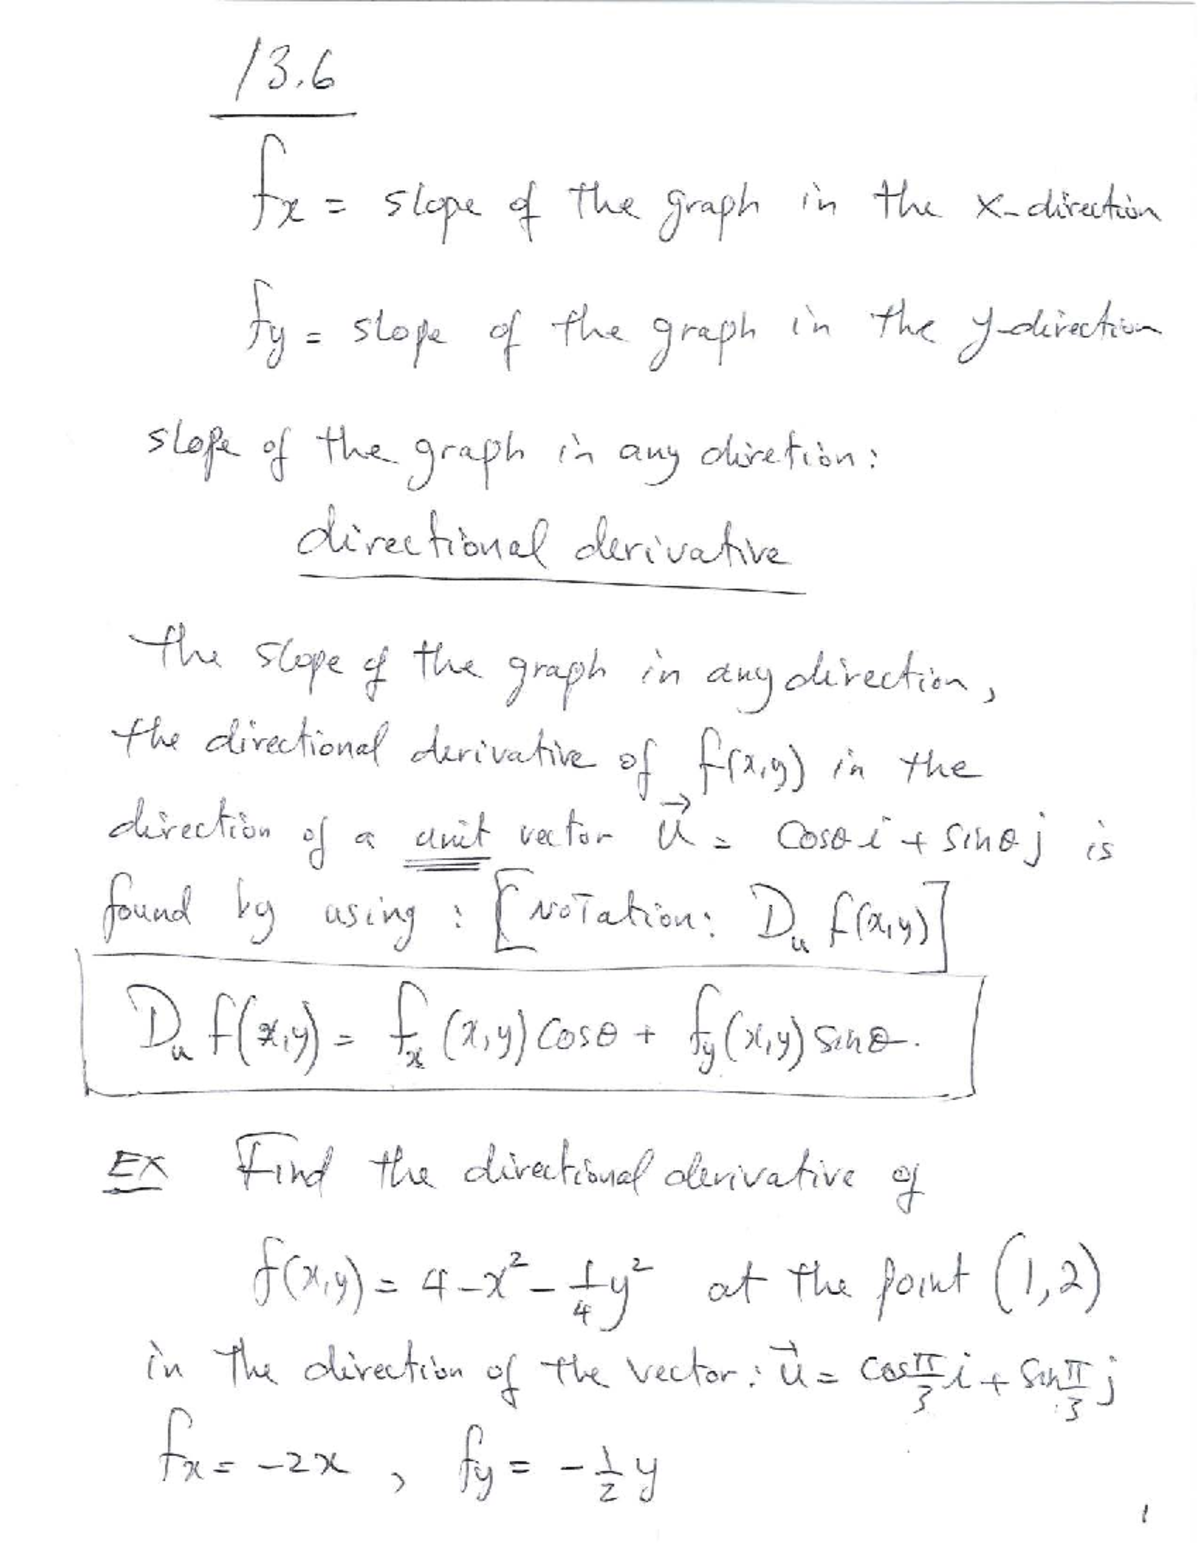 13.6
fx = slope of the graph in the x-direction
fy = slope of the graph in the y-direction
slope of the graph in any diretion:
directional derivative
the slope of the graph in any direction,
the directional derivative of f(x,y) in the
direction of a unit vector u⃗ = cosθ i + sinθ j is
found by using : [NOTation: Du f(x,y)]
Du f(x,y) = fx (x,y) cosθ + fy (x,y) sinθ.
EX Find the directional derivative of
f(x,y) = 4 - x² - 1/4 y² at the point (1,2)
in the direction of the vector: u⃗ = cos π/3 i + sin π/3 j
fx = -2x , fy = - 1/2 y
1